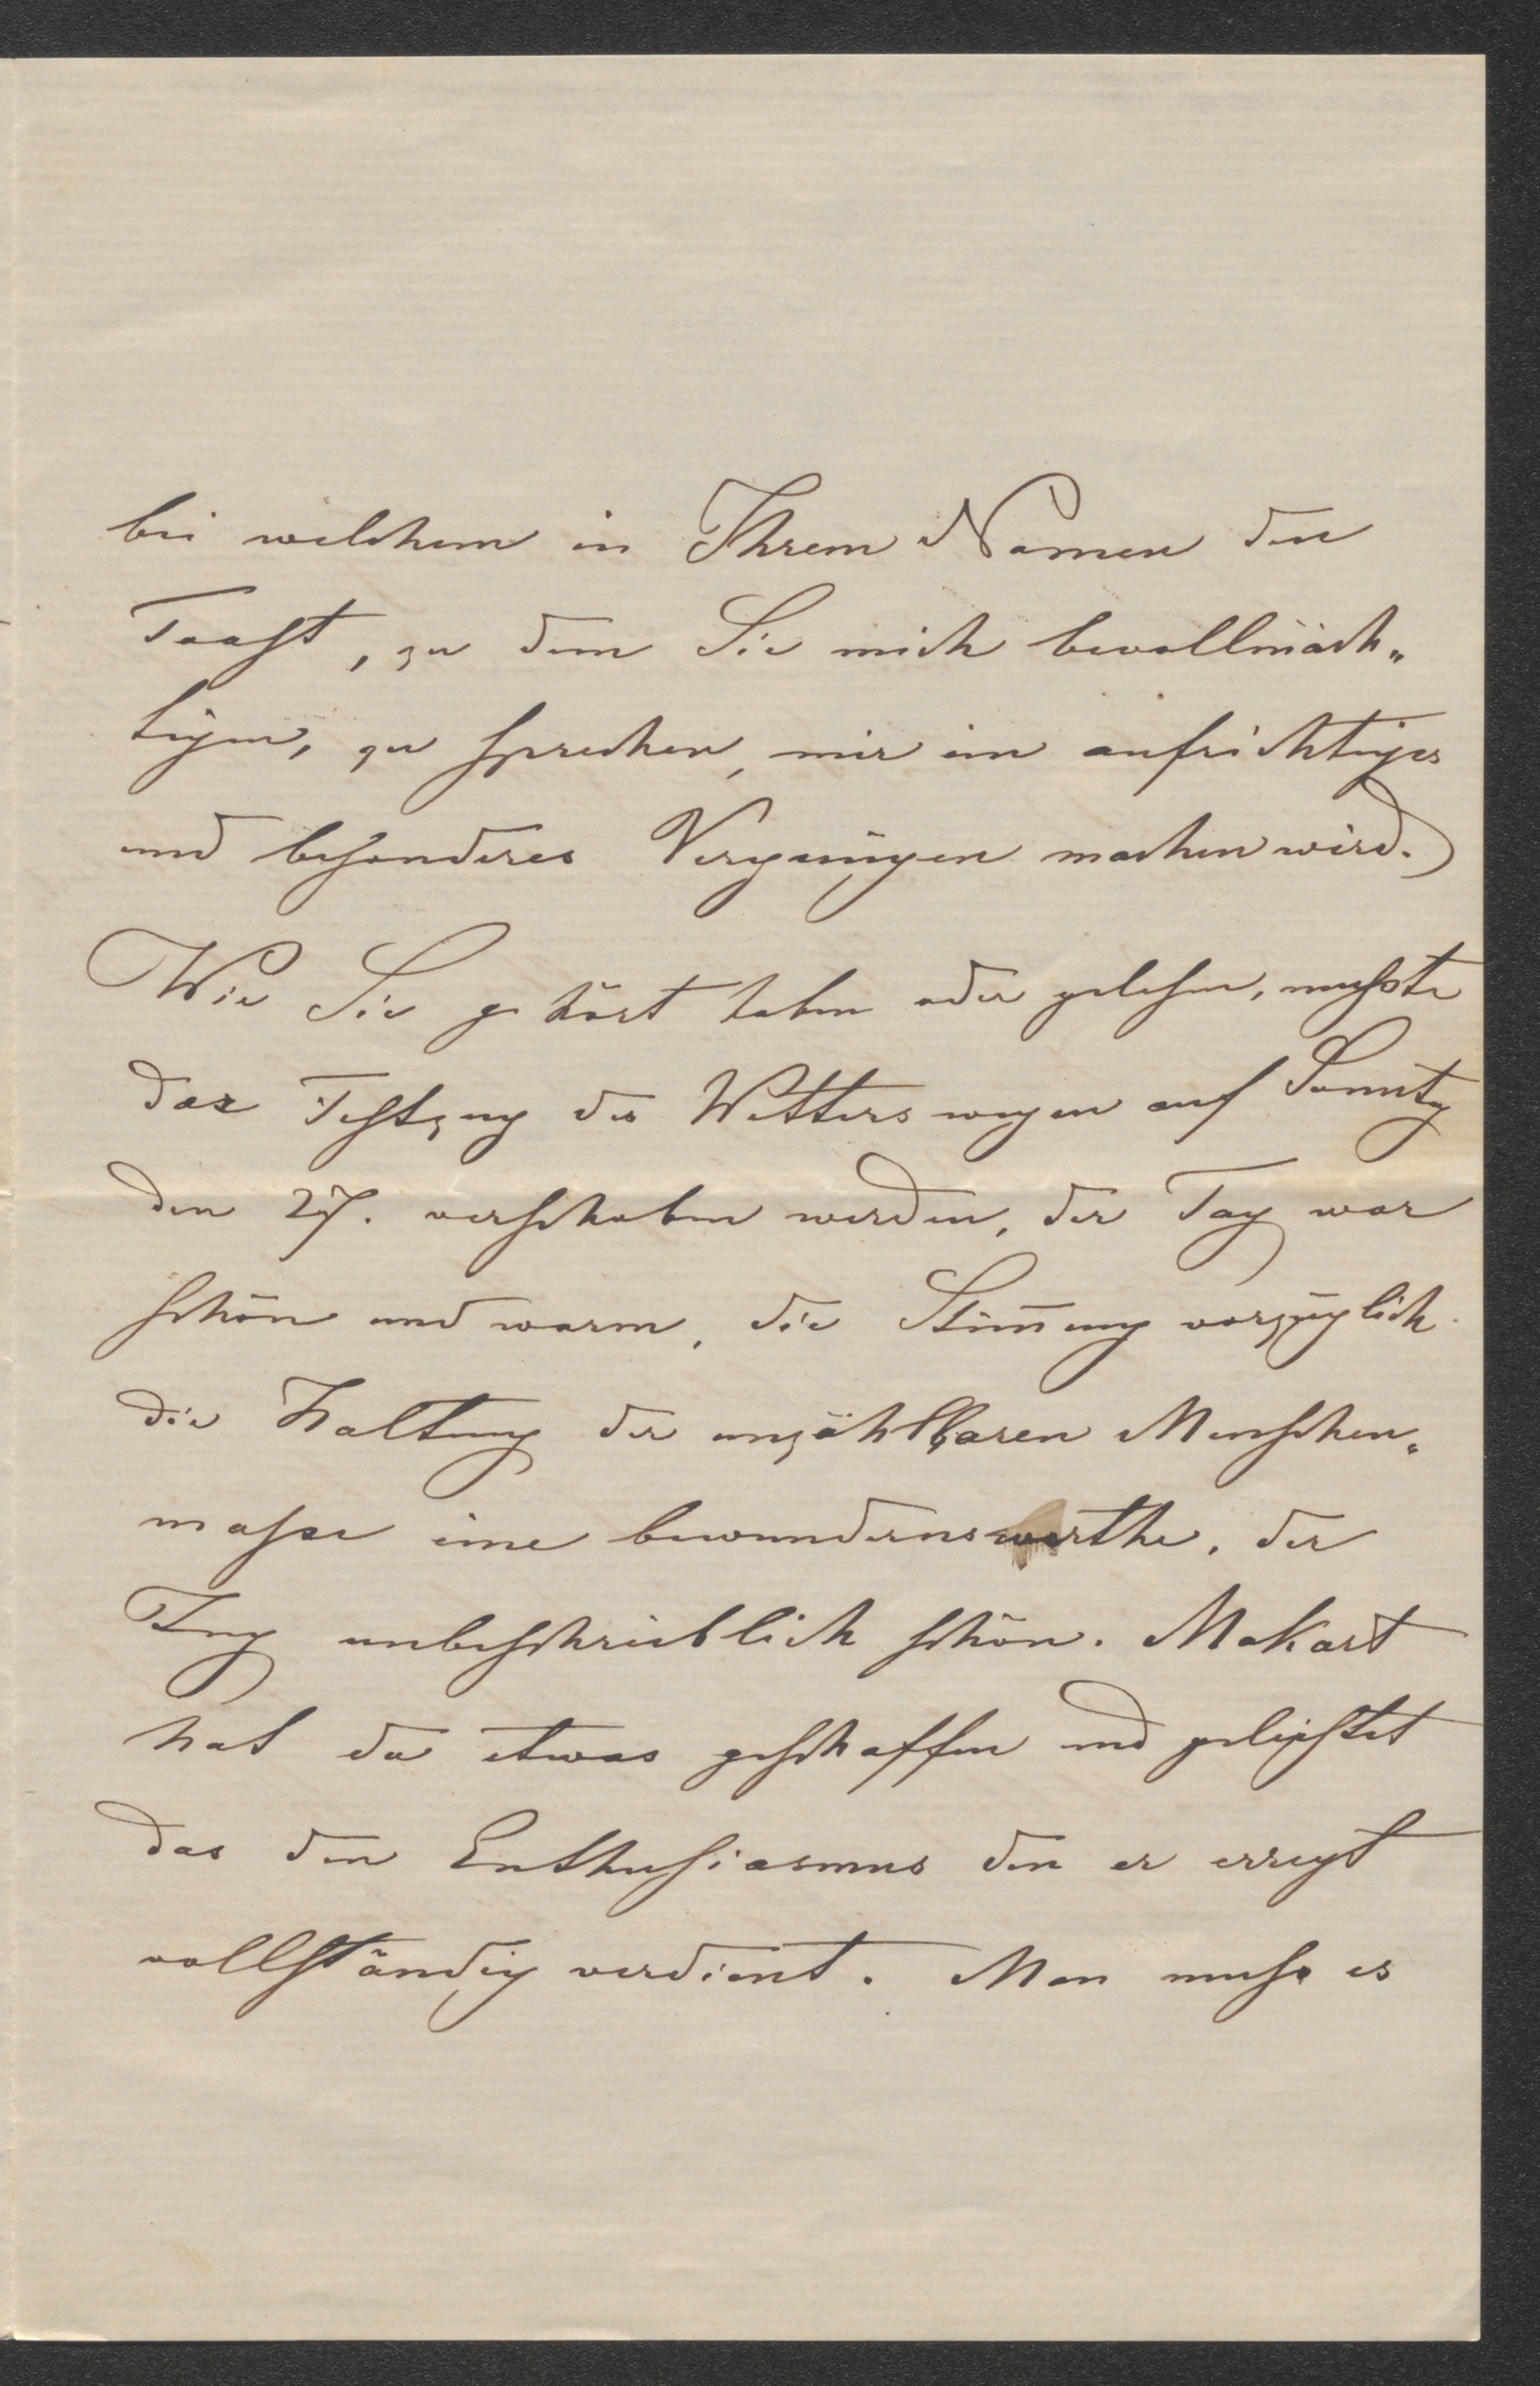 bei welchem in Ihrem Namen den
Toast, zu dem Sie mich bevollmäch„
tigen, zu sprechen, mir ein aufrichtiges
und besonderes Vergnügen machen wird.)
Wie Sie gehört haben oder gelesen, mußte
der Festzug des Wetters wegen auf Sonntg
den 27. verschoben werden, der Tag war
schön und warm, die Stim̅ung vorzüglich
die Haltung der unzählbaren Menschen„
masse eine bewundernswerthe, der
Zug unbeschreiblich schön. Makart
hat da etwas geschaffen und geleistet
das den Enthusiasmus den er erregt
vollständig verdient. Man muss es